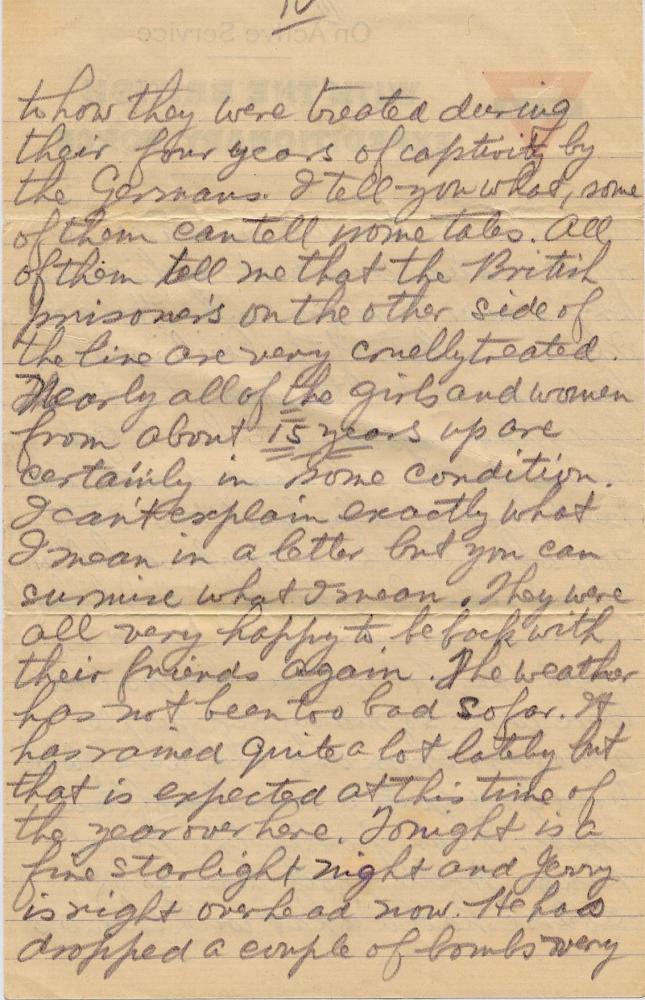 10
On Active Service
to how they were treated during
their four years of captivity by
the Germans. I tell you what, some
of them can tell some tales. All
of them tell me that the British
prisoner's on the other side of
the line are very cruelly treated.
Nearly all of the girls and women
from about 15 years up are
certainly in some condition.
I can't explain exactly what
I mean in a letter but you can
surmise what I mean. They were
all very happy to be back with
their friends again. The weather
has not been too bad so far. It
has rained quite a lot lately but
that is expected at this time of
the year over here. Tonight is a
fine starlight night and Jerry
is right overhead now. He has
dropped a couple of bombs very